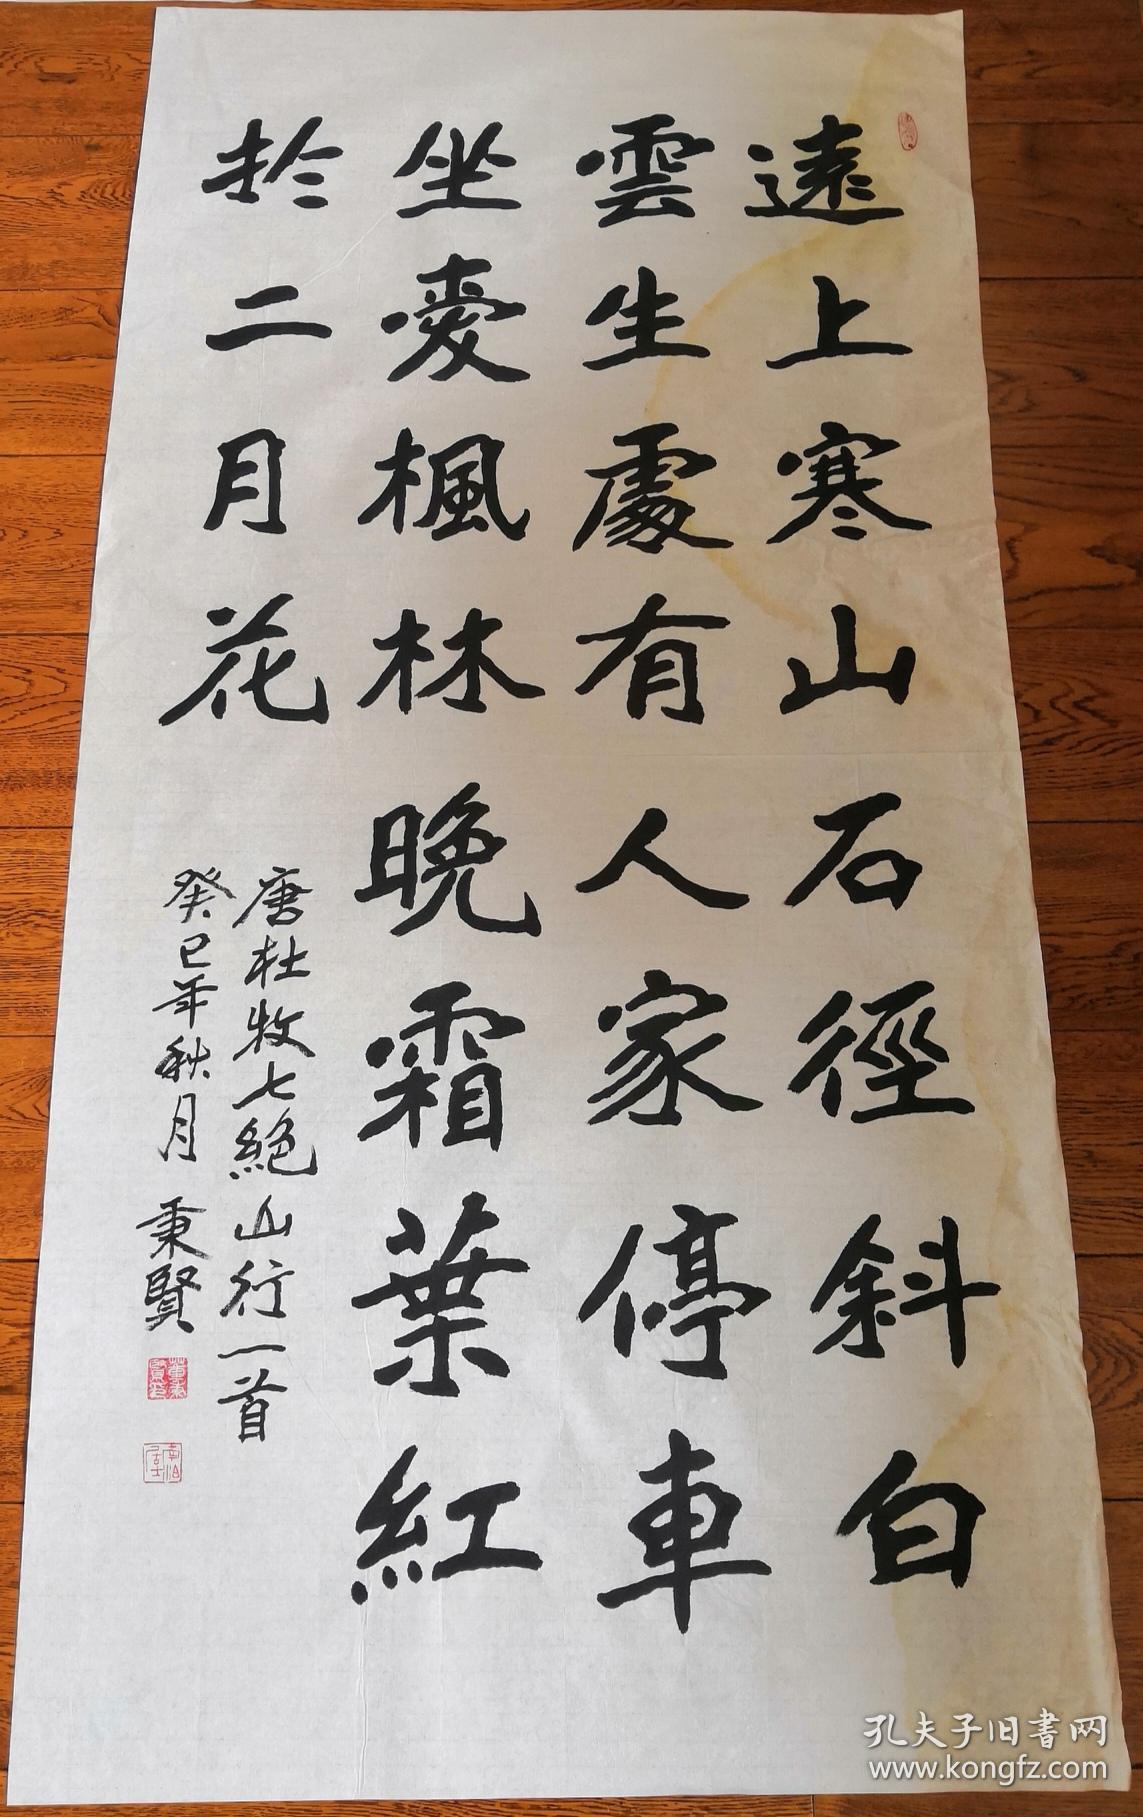 遠上寒山石徑斜白
雲生處有人家停車
坐愛楓林晚霜葉紅
於二月花
唐杜牧七絕山行一首
癸巳年秋月 秉賢
孔夫子旧书网
www.kongfz.com